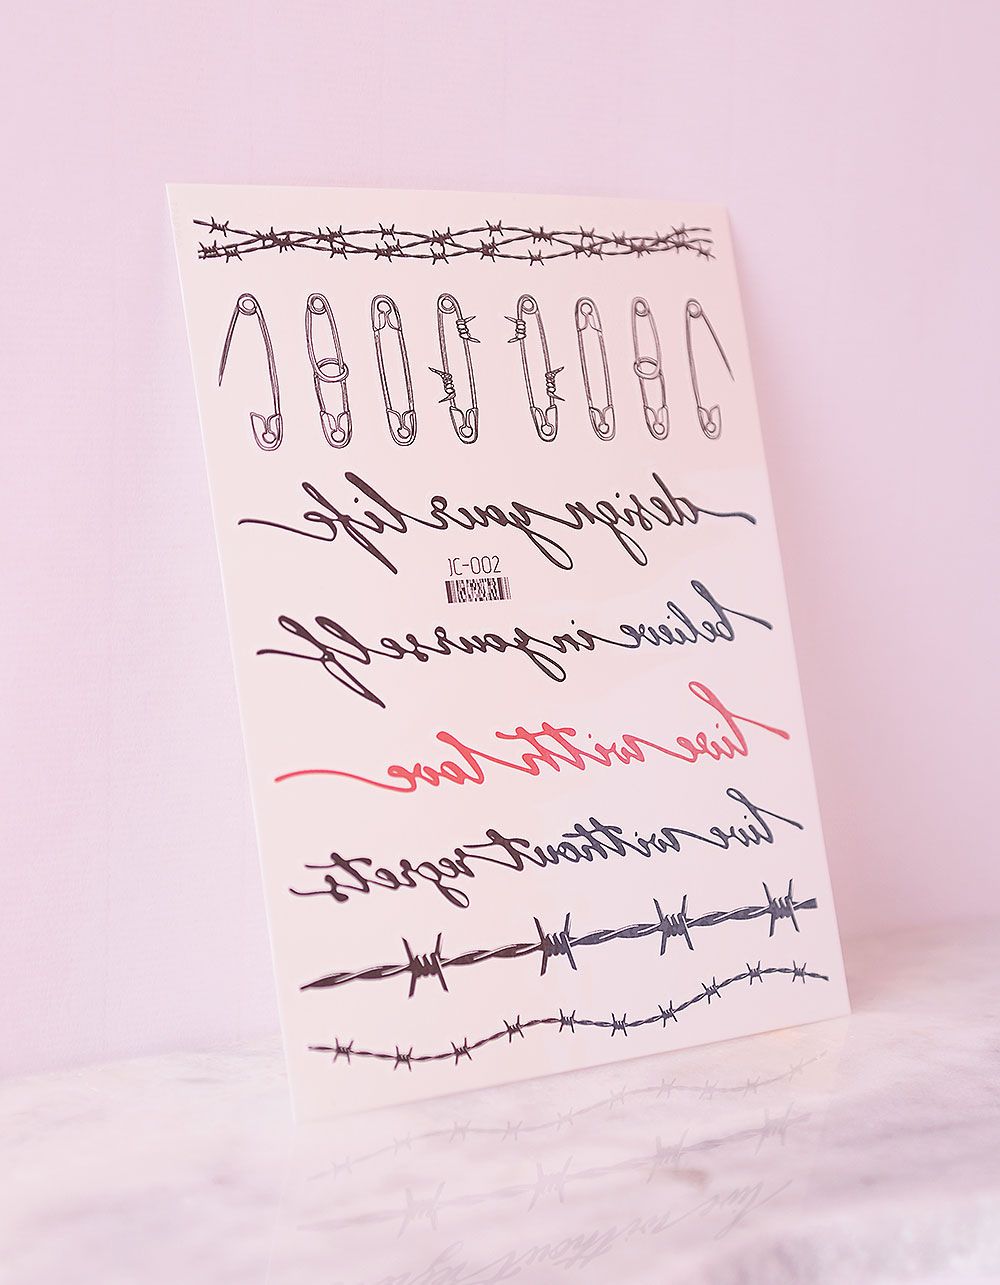 design your life
JC-002
believe in yourself
live with love
live without regrets